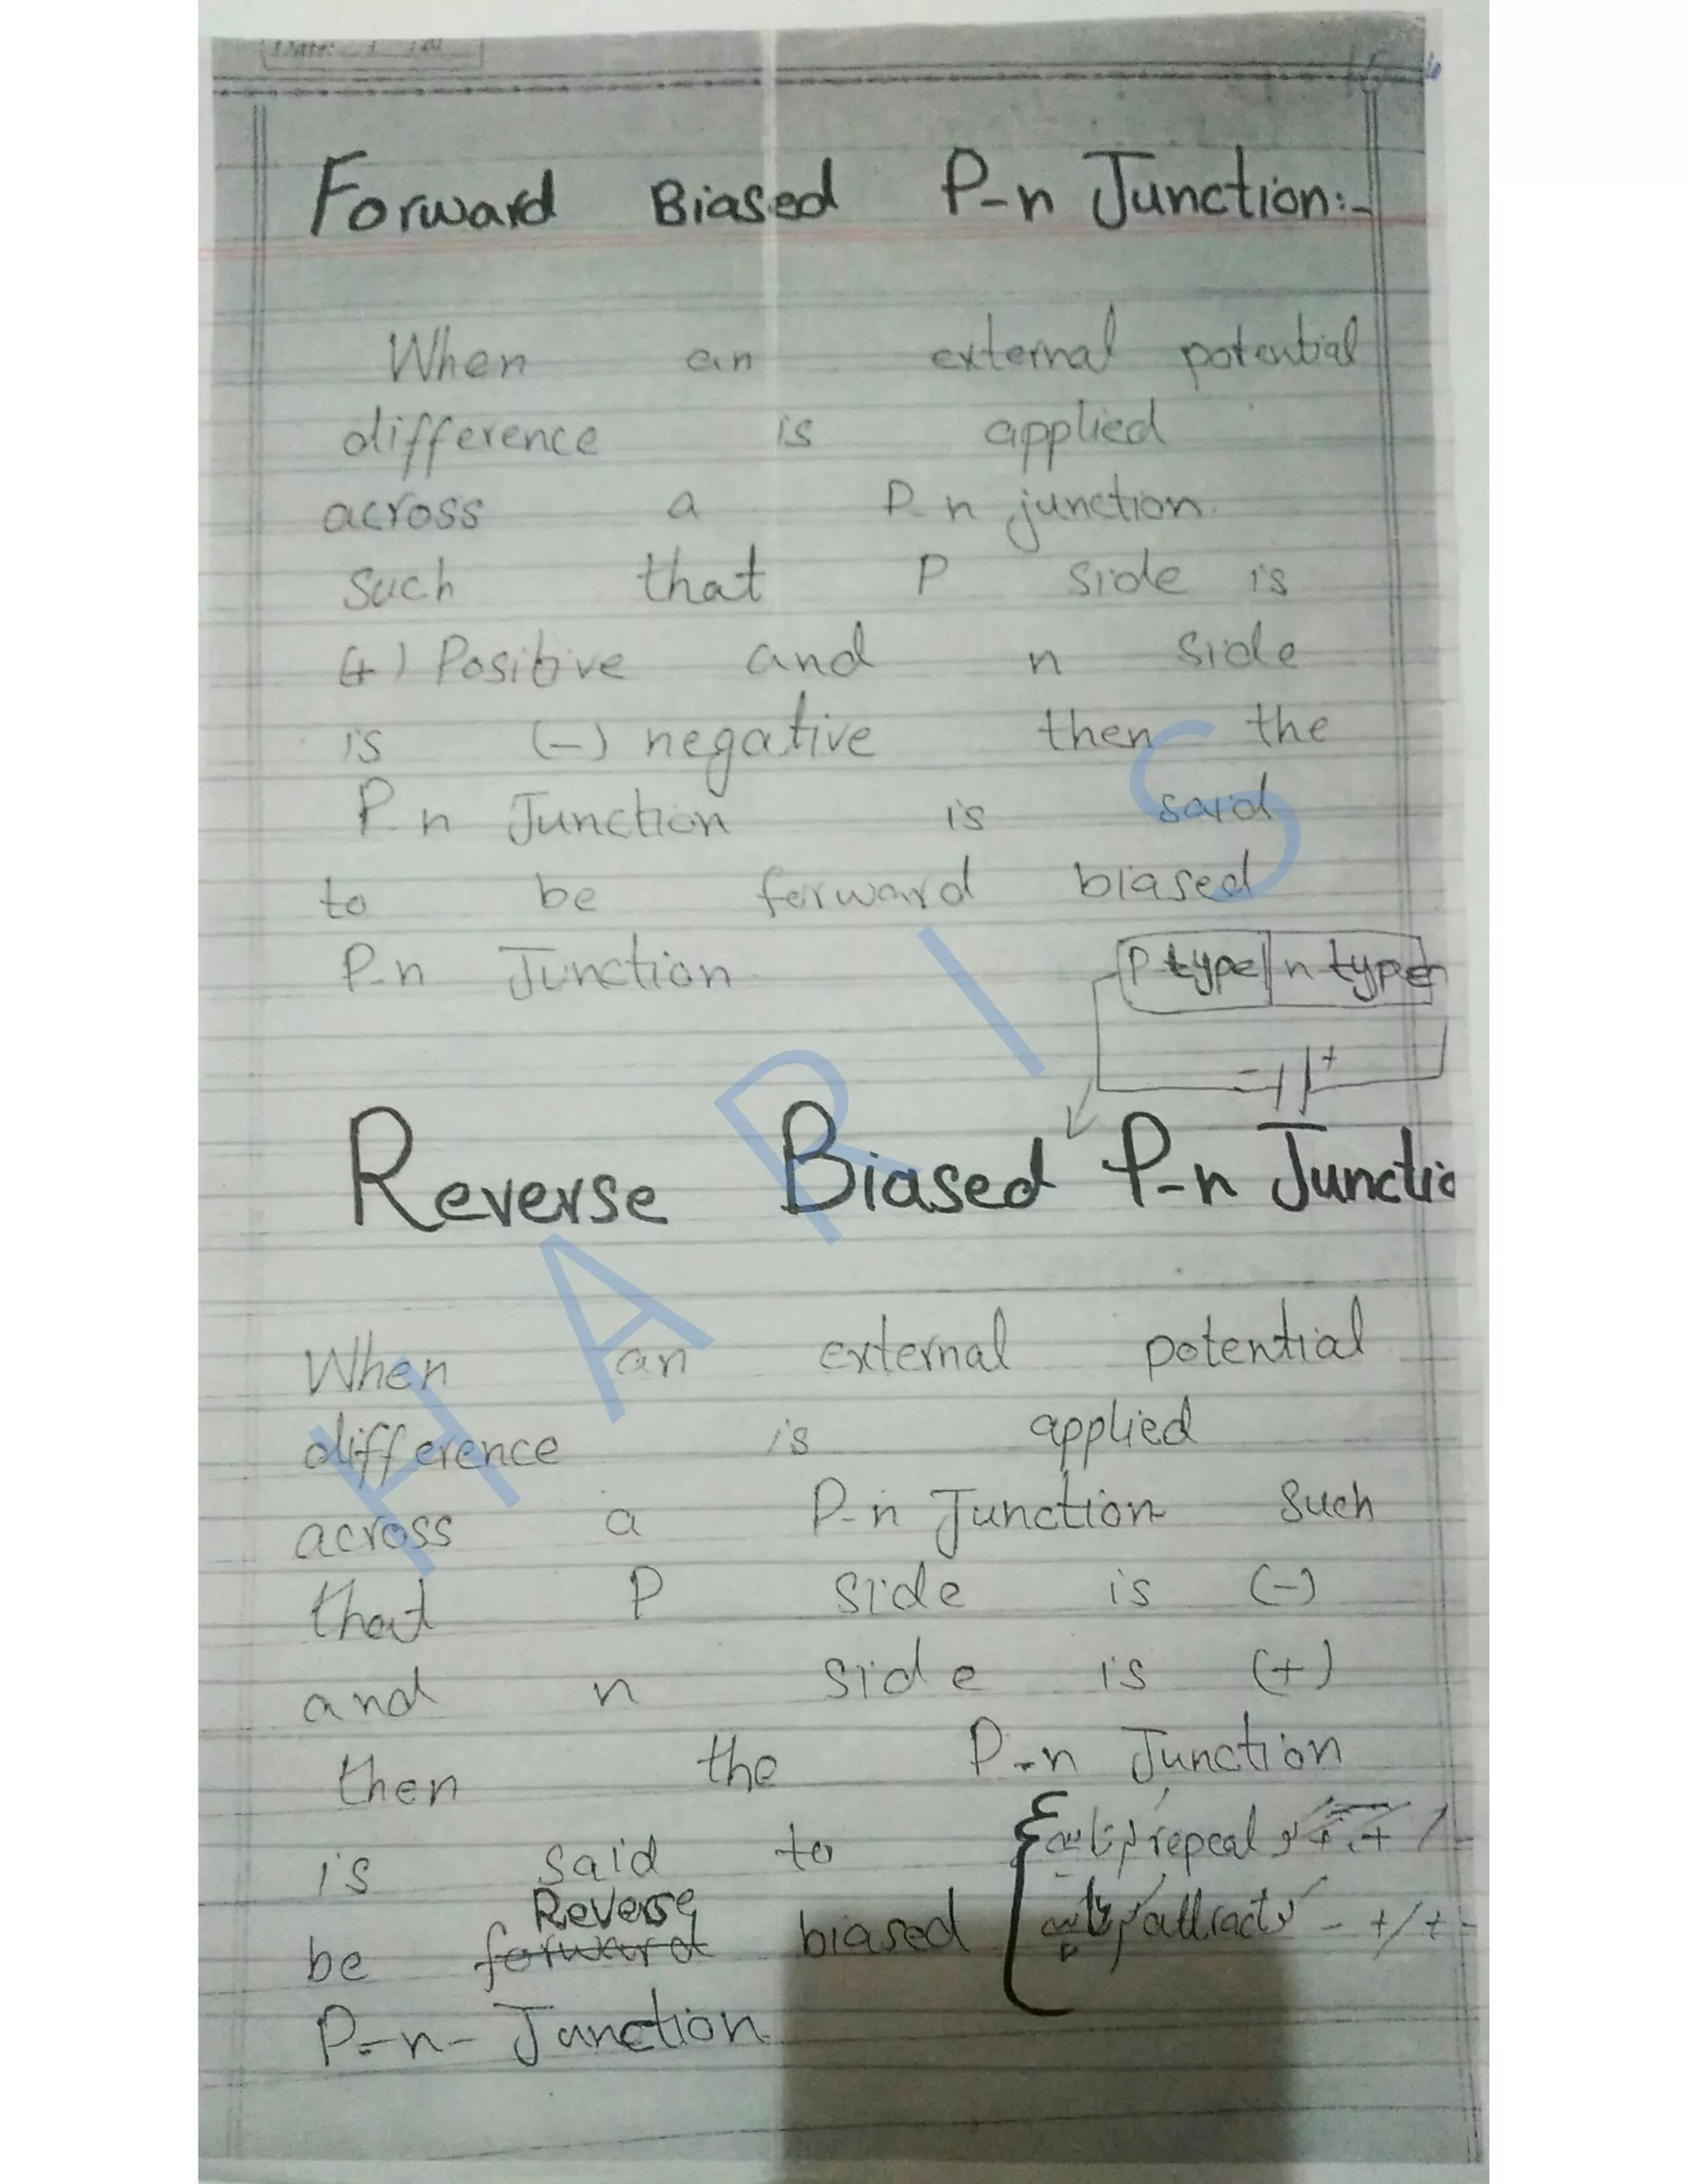 Date:
Forward Biased P-n Junction:-
When an external potential
difference is applied
across a P-n junction.
Such that P side is
(+) Positive and n side
is (-) negative then the
P-n Junction is said
to be forward biased
P-n Junction
P type n type
- +
Reverse Biased P-n Junctio
When an external potential
difference is applied
across a P-n Junction such
that P side is (-)
and n side is (+)
then the P-n Junction
is said to
repeal
Reverse
be forward biased
attract - +/+ -
P-n- Junction
HARIS